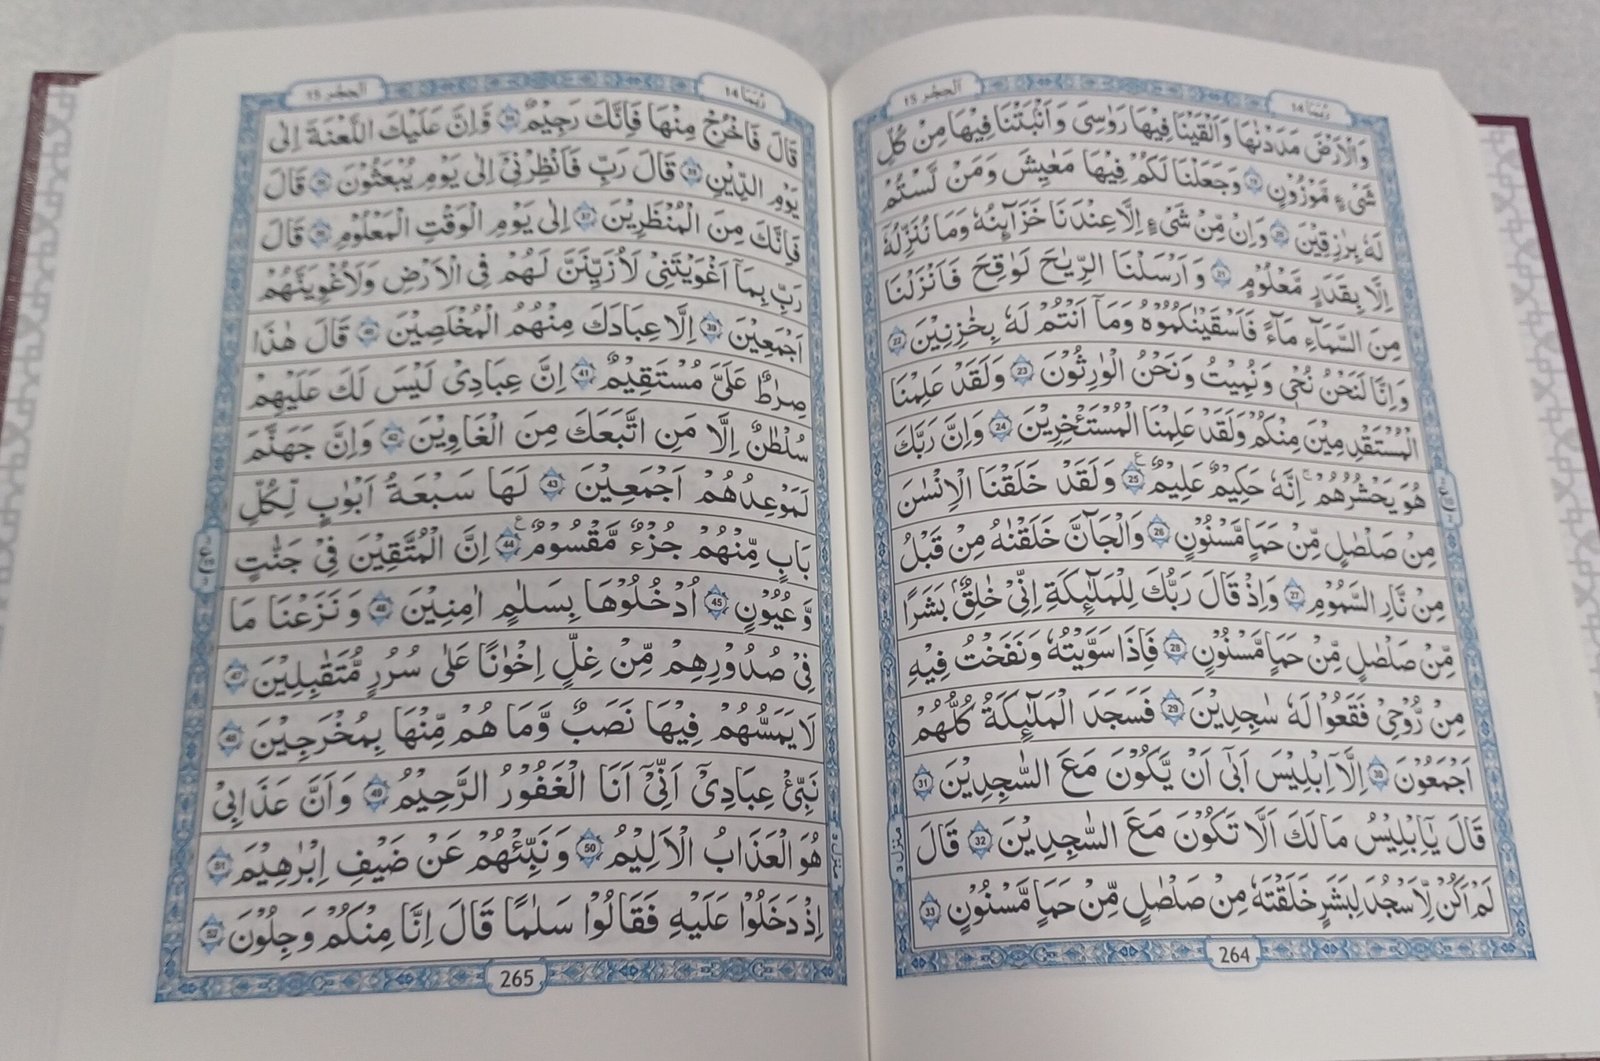 رُبَمَا 14
اَلْحِجْر 15
وَالْاَرْضَ مَدَدْنٰهَا وَاَلْقَيْنَا فِيْهَا رَوٰسِىَ وَاَنْۢبَتْنَا فِيْهَا مِنْ كُلِّ
شَىْءٍ مَّوْزُوْنٍ 19 وَجَعَلْنَا لَكُمْ فِيْهَا مَعٰيِشَ وَمَنْ لَّسْتُمْ
لَهٗ بِرٰزِقِيْنَ 20 وَاِنْ مِّنْ شَىْءٍ اِلَّا عِنْدَنَا خَزَآئِنُهٗ وَمَا نُنَزِّلُهٗۤ
اِلَّا بِقَدَرٍ مَّعْلُوْمٍ 21 وَاَرْسَلْنَا الرِّيٰحَ لَوٰقِحَ فَاَنْزَلْنَا
مِنَ السَّمَآءِ مَآءً فَاَسْقَيْنٰكُمُوْهُ وَمَاۤ اَنْتُمْ لَهٗ بِخٰزِنِيْنَ 22
وَاِنَّا لَنَحْنُ نُحْىٖ وَنُمِيْتُ وَنَحْنُ الْوٰرِثُوْنَ 23 وَلَقَدْ عَلِمْنَا
الْمُسْتَقْدِمِيْنَ مِنْكُمْ وَلَقَدْ عَلِمْنَا الْمُسْتَـْٔخِرِيْنَ 24 وَاِنَّ رَبَّكَ
هُوَ يَحْشُرُهُمْ ؕ اِنَّهٗ حَكِيْمٌ عَلِيْمٌ 25 وَلَقَدْ خَلَقْنَا الْاِنْسٰنَ
مِنْ صَلْصٰلٍ مِّنْ حَمَاٍ مَّسْنُوْنٍ 26 وَالْجَآنَّ خَلَقْنٰهُ مِنْ قَبْلُ
مِنْ نَّارِ السَّمُوْمِ 27 وَاِذْ قَالَ رَبُّكَ لِلْمَلٰٓئِكَةِ اِنِّىْ خٰلِقٌۢ بَشَرًا
مِّنْ صَلْصٰلٍ مِّنْ حَمَاٍ مَّسْنُوْنٍ 28 فَاِذَا سَوَّيْتُهٗ وَنَفَخْتُ فِيْهِ
مِنْ رُّوْحِىْ فَقَعُوْا لَهٗ سٰجِدِيْنَ 29 فَسَجَدَ الْمَلٰٓئِكَةُ كُلُّهُمْ
اَجْمَعُوْنَ 30 اِلَّاۤ اِبْلِيْسَ اَبٰٓى اَنْ يَّكُوْنَ مَعَ السّٰجِدِيْنَ 31
قَالَ يٰۤاِبْلِيْسُ مَا لَكَ اَلَّا تَكُوْنَ مَعَ السّٰجِدِيْنَ 32 قَالَ
لَمْ اَكُنْ لِّاَسْجُدَ لِبَشَرٍ خَلَقْتَهٗ مِنْ صَلْصٰلٍ مِّنْ حَمَاٍ مَّسْنُوْنٍ 33
منزل ٣
264
رُبَمَا 14
اَلْحِجْر 15
قَالَ فَاخْرُجْ مِنْهَا فَاِنَّكَ رَجِيْمٌ 34 وَّاِنَّ عَلَيْكَ اللَّعْنَةَ اِلٰى
يَوْمِ الدِّيْنِ 35 قَالَ رَبِّ فَاَنْظِرْنِىْۤ اِلٰى يَوْمِ يُبْعَثُوْنَ 36 قَالَ
فَاِنَّكَ مِنَ الْمُنْظَرِيْنَ 37 اِلٰى يَوْمِ الْوَقْتِ الْمَعْلُوْمِ 38 قَالَ
رَبِّ بِمَاۤ اَغْوَيْتَنِىْ لَاُزَيِّنَنَّ لَهُمْ فِى الْاَرْضِ وَلَاُغْوِيَنَّهُمْ
اَجْمَعِيْنَ 39 اِلَّا عِبَادَكَ مِنْهُمُ الْمُخْلَصِيْنَ 40 قَالَ هٰذَا
صِرٰطٌ عَلَىَّ مُسْتَقِيْمٌ 41 اِنَّ عِبَادِىْ لَيْسَ لَكَ عَلَيْهِمْ
سُلْطٰنٌ اِلَّا مَنِ اتَّبَعَكَ مِنَ الْغَاوِيْنَ 42 وَاِنَّ جَهَنَّمَ
لَمَوْعِدُهُمْ اَجْمَعِيْنَ 43 لَهَا سَبْعَةُ اَبْوٰبٍ لِّكُلِّ
بَابٍ مِّنْهُمْ جُزْءٌ مَّقْسُوْمٌ 44 اِنَّ الْمُتَّقِيْنَ فِىْ جَنّٰتٍ
وَّعُيُوْنٍ 45 اُدْخُلُوْهَا بِسَلٰمٍ اٰمِنِيْنَ 46 وَنَزَعْنَا مَا
فِىْ صُدُوْرِهِمْ مِّنْ غِلٍّ اِخْوٰنًا عَلٰى سُرُرٍ مُّتَقٰبِلِيْنَ 47
لَا يَمَسُّهُمْ فِيْهَا نَصَبٌ وَّمَا هُمْ مِّنْهَا بِمُخْرَجِيْنَ 48
نَبِّئْ عِبَادِىْۤ اَنِّىْۤ اَنَا الْغَفُوْرُ الرَّحِيْمُ 49 وَاَنَّ عَذَابِىْ
هُوَ الْعَذَابُ الْاَلِيْمُ 50 وَنَبِّئْهُمْ عَنْ ضَيْفِ اِبْرٰهِيْمَ 51
اِذْ دَخَلُوْا عَلَيْهِ فَقَالُوْا سَلٰمًا قَالَ اِنَّا مِنْكُمْ وَجِلُوْنَ 52
منزل ٣
265